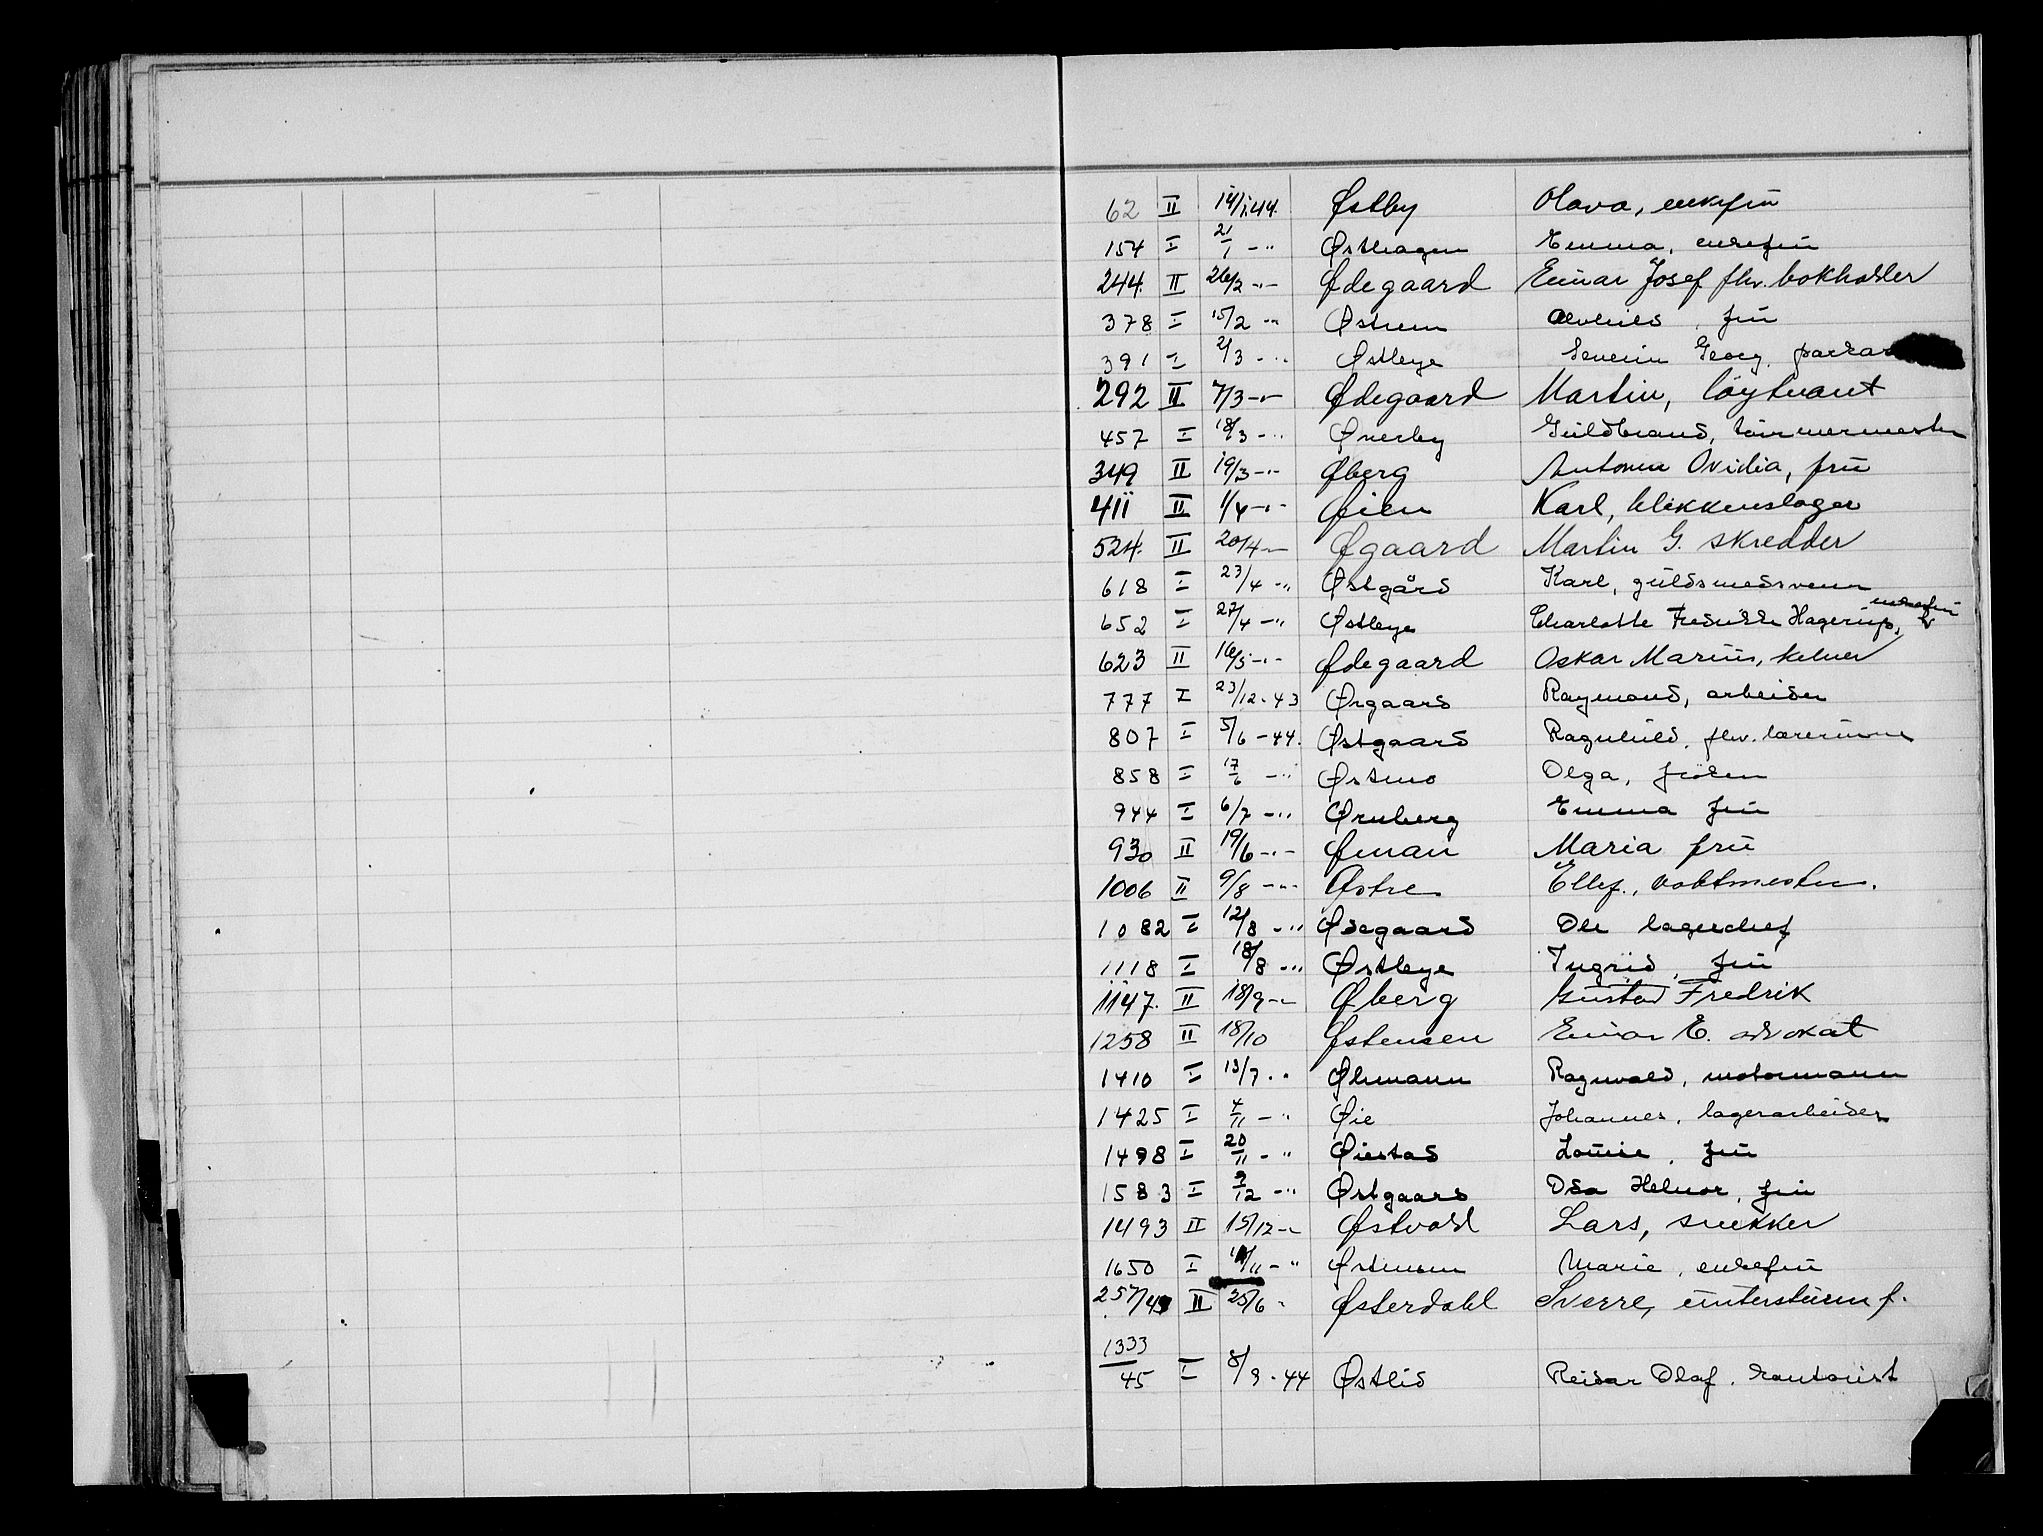 62 II 14/1.44. Østby Olava, enkefru
154 I 21/1 -" Østhagen Emma, enkefru
244. II 26/2 -"- Ødegaard Einar Josef fhv. bokholder
378 I 15/2 -" Østrem Alvhild, fru
391 I 2/3 -" Østbye Severin Georg,
292 II 7/3 -"- Ødegaard Martin, løytnant
457 I 18/3 -" Øverby Guldbrand, tømmermester
349 II 19/3 -"- Øberg Antonie Ovidia, fru
411 II 1/4 -"- Øien Karl, blikkenslager
524. II 20/4 -"- Øgaard Martin G. skredder
618 I 23/4 -" Østgård Karl, guldsmedsvenn
652 I 27/4 -" Østbye Charlotte Fredrikke Hagerup, enkefru
623 II 16/5 -"- Ødegaard Oskar Marius, kelner
777 I 23/12-43 Ørgaard Raymond, arbeider
807 I 5/6 -44. Østgaard Ragnhild, fhv. lærerinne
858 I 17/6 -" Østmo Olga, frøken
944 I 6/7 -" Ørnberg Emma fru
930 II 19/6 -"- Øman Maria fru
1006 II 9/8 -"- Østre Ellef, vaktmester.
1082 I 12/8 -" Ødegaard Ole lagerchef
1118 I 18/8 -" Østbye Ingrid, fru
1147. II 18/9 -"- Øberg Gustav Fredrik
1258 II 18/10 Østensen Einar E. advokat
1410 I 13/7 " Øhmann Ragnvald, motormann
1425 I 4/11 -" Øie Johannes, lagerarbeider
1498 I 20/11 -" Øiestad Louise, fru
1583 I 9/12 -" Østgaard Oda Helnor, fru
1493 II 15/12 -"- Østvold Lars, snekker
1650 I /11 -" Østensen Marie, enkefru
257/45 II 25/6 " Østerdahl Sverre, untersturmf.
1333/45 I 8/9-44 Østlid Reidar Olaf, kontorist